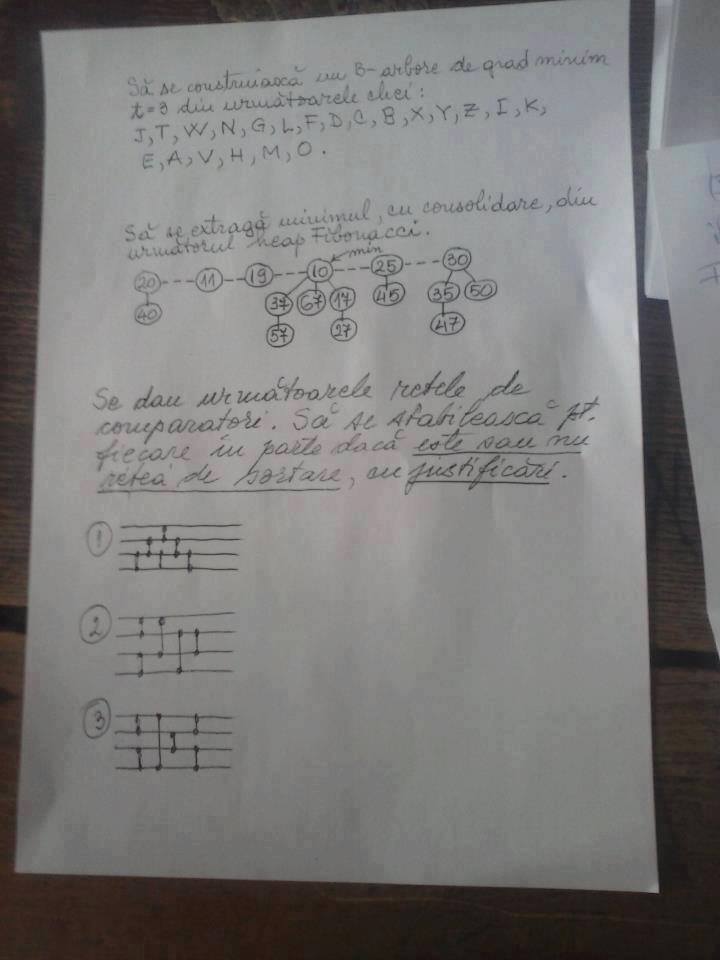 Să se construiască un B-arbore de grad minim
t=3 din următoarele chei:
J, T, W, N, G, L, F, D, C, B, X, Y, Z, I, K,
E, A, V, H, M, O.
Să se extragă minimul, cu consolidare, din
următorul heap Fibonacci.
min
20 11 19 10 25 30
40 37 67 17 45 35 50
57 27 47
Se dau următoarele rețele de
comparatori. Să se stabilească pt.
fiecare în parte dacă este sau nu
rețea de sortare, cu justificări.
1
2
3